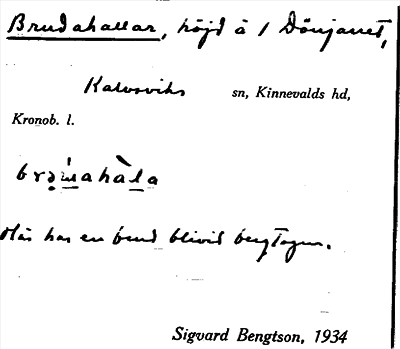 Brudahallar, höjd å 1 Dönjanet,
Kalvsviks sn, Kinnevalds hd,
Kronob. l.
Här har en brud blivit bergtagen.
Sigvard Bengtson, 1934